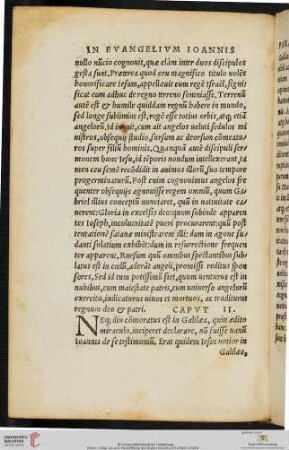 IN EVANGELIVM IOANNIS
nullo nũcio cognouit, quæ clàm inter duos discipulos
gesta sunt. Præterea quod eũ magnifico titulo uolẽs
honorificare Iesum, appellauit eum regẽ Israël, signi
ficat eum adhuc de regno terreno somniasse. Terrenũ
autẽ est & humile quiddam regnũ habere in mundo,
sed longe sublimius est, regẽ esse totius orbis, atq; etiã
angelorũ, id innuit, cum ait angelos uelut sedulos mi
nistros, obsequij studio, sursum ac deorsum cõmeatu
ros super filiũ hominis. Quanquã autẽ discipuli ser
monem hunc Iesu, id tẽporis nondum intellexerant, ta
men ceu semẽ recõditũ in animis illorũ, suo tempore
progerminaturũ. Post enim cognouimus angelos fre
quenter obsequijs agnouisse regem omniũ, quum Ga
briel illius conceptũ nunciaret, quũ in natiuitate ca
nerent: Gloria in excelsis deo, quum subinde apparen
tes Ioseph, incolumitatẽ pueri procurarent: quũ post
tentationẽ satanæ ministrarent illi: dum in agone su
danti solatium exhibẽt: dum in resurrectione frequen
ter apparent. Rursum quũ omnibus spectantibus sub
latus est in cœlũ, aderãt angeli, promissi reditus spon
sores. Sed id tum potissimũ fiet, quum uenturus est in
nubibus, cum maiestate patris, cum uniuerso angelorũ
exercitu, iudicaturus uiuos et mortuos, ac traditurus
regnum deo & patri. CAPVT II.
NEq; diu cõmoratus est in Galilæa, quin ædito
miraculo, inciperet declarare, nõ fuisse uanũ
Ioannis de se testimoniũ. Erat quidem Iesus notior in
Galilæa,